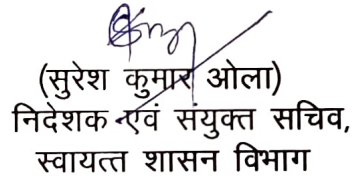 (सुरेश कुमार ओला)
निदेशक एवं संयुक्त सचिव,
स्वायत्त शासन विभाग